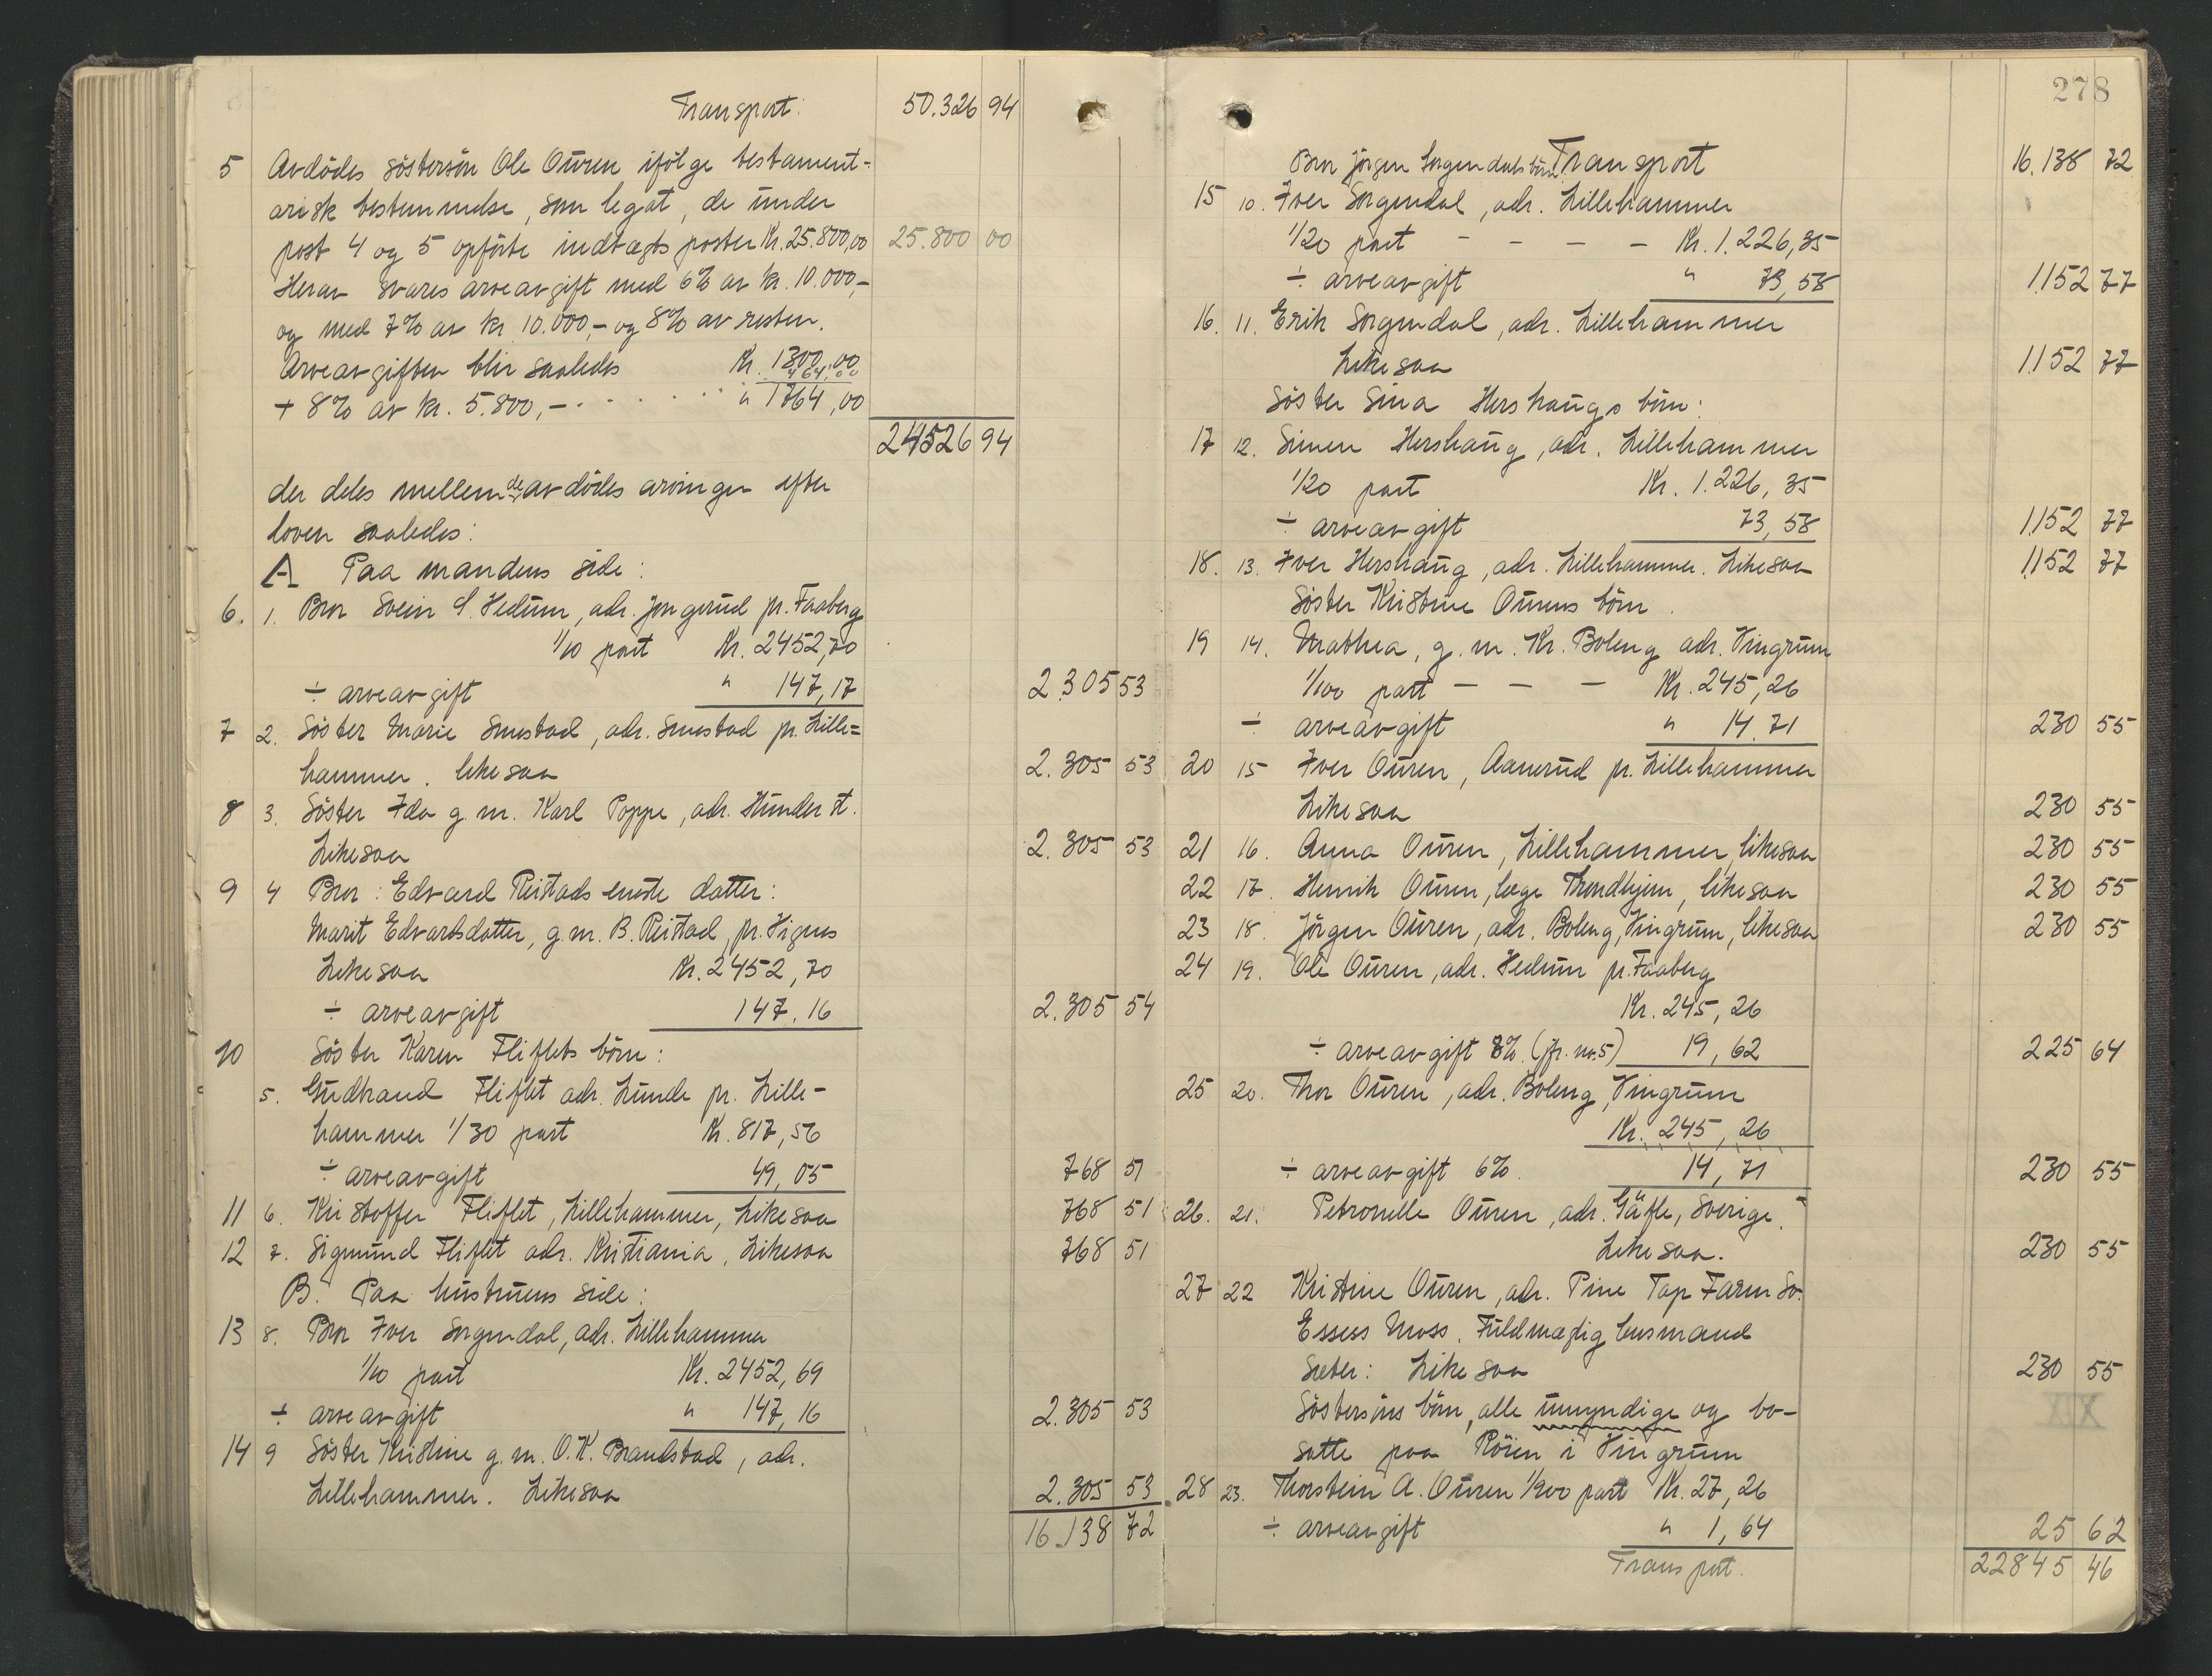 Transport: 50.326 94
5 Avdödes söstersön Ole Ouren ifölge testament-
arisk bestemmelse, som legat, de under
post 4 og 5 opförte indtægtsposter Kr. 25.800,00 25.800 00
Herav svares arveavgift med 6% av kr. 10.000,-
og med 7% av kr. 10.000,- og 8% av resten.
Arveavgiften blir saaledes Kr. 1300,00
464,00
+ 8% av kr. 5.800,- . . . . . . " 1764,00
24526 94
der deles mellem de avdödes arvinger efter
loven saaledes:
A Paa mandens side:
6. 1. Bror Svein S. Hedum, adr. Jongerud pr. Faaberg
1/10 part Kr. 2452,70
÷ arveavgift " 147,17 2.305 53
7 2. Söster Marie Smestad, adr. Smestad pr. Lille=
hammer. likesaa 2.305 53
8 3. Söster Ida g. m. Karl Poppe, adr. Hunder st.
Likesaa 2.305 53
9 4 Bror: Edvard Ristads eneste datter:
Marit Edvardsdatter, g. m. B. Ristad, pr. Vignes
Likesaa Kr. 2452,70
÷ arveavgift 147,16 2.305 54
10 Söster Karen Fliflets börn:
5. Gudbrand Fliflet adr. Lunde pr. Lille-
hammer 1/30 part Kr. 817,56
÷ arveavgift 49,05 768 51
11 6. Kristoffer Fliflet, Lillehammer, Likesaa 768 51
12 7. Sigmund Fliflet adr. Kristiania, Likesaa 768 51
B. Paa hustruens side:
13 8. Bror Iver Sorgendal, adr. Lillehammer
1/10 part Kr. 2452,69
÷ arveavgift " 147,16 2.305 53
14 9 Söster Kristine g. m. O. K. Brandstad, adr.
Lillehammer. Likesaa 2.305 53
16.138 72
278
Bror Jörgen Sorgendals börn Transport 16.138 72
15 10. Iver Sorgendal, adr. Lillehammer
1/20 part - - - - Kr. 1.226,35
÷ arveavgift " 73,58 1152 77
16. 11. Erik Sorgendal, adr. Lillehammer
Likesaa 1152 77
Söster Sina Hershaugs börn:
17 12. Simen Hershaug, adr. Lillehammer
1/20 part Kr. 1.226,35
÷ arveavgift 73,58 1152 77
18. 13. Iver Hershaug, adr. Lillehammer. Likesaa 1152 77
Söster Kristine Ourens börn.
19 14. Mathea, g. m. Kr. Boleng adr. Vingrum
1/100 part - - - Kr. 245,26
÷ arveavgift " 14.71 230 55
20 15 Iver Ouren, Aanerud pr. Lillehammer
Likesaa 230 55
21 16. Anna Ouren, Lillehammer, likesaa 230 55
22 17. Henrik Ouren, læge Trondhjem, likesaa 230 55
23 18. Jörgen Ouren, adr. Boleng, Vingrum, likesaa 230 55
24 19. Ole Ouren, adr. Hedum pr. Faaberg
Kr. 245,26
÷ arveavgift 8% (jfr. nr. 5) 19,62 225 64
25 20. Thor Ouren, adr. Boleng, Vingrum
Kr. 245,26
÷ arveavgift 6% 14,71 230 55
26. 21. Petronelle Ouren, adr. Gäfle, Sverige.
Likesaa. 230 55
27 22 Kristine Ouren, adr. Pine Tap Farm So.
Essess Mass. Fuldmægtig lensmand
Sæter: Likesaa 230 55
Söstersöns börn, alle umyndige og bo-
satte paa Röien i Vingrum
28 23. Thorstein A. Ouren 1/900 part Kr. 27,26
÷ arveavgift " 1,64 25 62
Transport. 22845 46